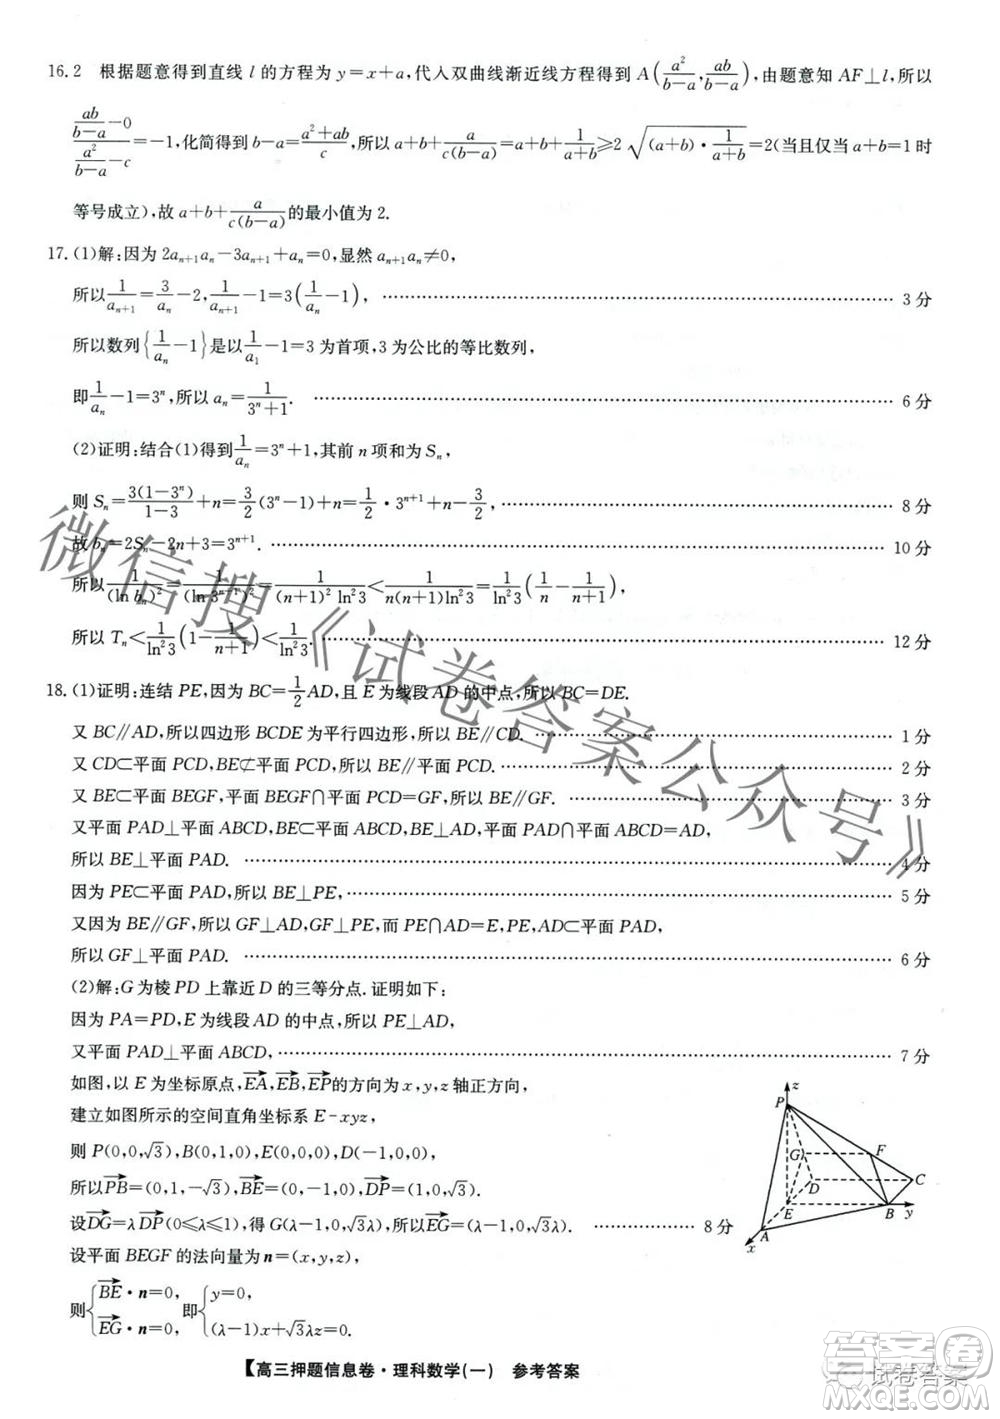 16. 2 根据题意得到直线 l 的方程为 y=x+a,代入双曲线渐近线方程得到 A(a²/(b−a), ab/(b−a)),由题意知 AF⊥l,所以
(ab/(b−a)−0)/(a²/(b−a)−c)=−1,化简得到 b−a=(a²+ab)/c,所以 a+b+a/(c(b−a))=a+b+1/(a+b)≥2√((a+b)·1/(a+b))=2(当且仅当 a+b=1 时
等号成立),故 a+b+a/(c(b−a))的最小值为 2.
17. (1)解:因为 2aₙ₊₁aₙ−3aₙ₊₁+aₙ=0,显然 aₙ₊₁aₙ≠0,
所以 1/aₙ₊₁=3/aₙ−2,1/aₙ₊₁−1=3(1/aₙ−1), …… 3 分
所以数列{1/aₙ−1}是以1/a₁−1=3 为首项,3 为公比的等比数列,
即1/aₙ−1=3ⁿ,所以 aₙ=1/(3ⁿ+1). …… 6 分
(2)证明:结合(1)得到1/aₙ=3ⁿ+1,其前 n 项和为 Sₙ,
则 Sₙ=3(1−3ⁿ)/(1−3)+n=3/2(3ⁿ−1)+n=n+1/2·3ⁿ⁺¹−3/2, …… 8 分
故 bₙ=2Sₙ−2n+3=3ⁿ⁺¹. …… 10 分
所以1/(ln bₙ)²=1/(ln 3ⁿ⁺¹)²=1/((n+1)² ln²3)<1/(n(n+1)ln²3)=1/ln²3(1/n−1/(n+1)),
所以 Tₙ<1/ln²3(1−1/(n+1))<1/ln²3. …… 12 分
18. (1)证明:连结 PE,因为 BC=1/2AD,且 E 为线段 AD 的中点,所以 BC=DE.
又 BC∥AD,所以四边形 BCDE 为平行四边形,所以 BE∥CD. …… 1 分
又 CD⊂平面 PCD,BE⊄平面 PCD,所以 BE∥平面 PCD. …… 2 分
又 BE⊂平面 BEGF,平面 BEGF∩平面 PCD=GF,所以 BE∥GF. …… 3 分
又平面 PAD⊥平面 ABCD,BE⊥AD,BE⊂平面 ABCD,平面 PAD∩平面 ABCD=AD,
所以 BE⊥平面 PAD. …… 4 分
因为 PE⊂平面 PAD,所以 BE⊥PE, …… 5 分
又因为 BE∥GF,所以 GF⊥AD,GF⊥PE,而 PE∩AD=E,PE⊂平面 PAD,AD⊂平面 PAD,
所以 GF⊥平面 PAD. …… 6 分
(2)解:G 为棱 PD 上靠近 D 的三等分点. 证明如下:
因为 PA=PD,E 为线段 AD 的中点,所以 PE⊥AD,
又平面 PAD⊥平面 ABCD,所以 PE⊥平面 ABCD. …… 7 分
如图,以 E 为坐标原点,EA→,EB→,EP→的方向为 x,y,z 轴正方向,
建立如图所示的空间直角坐标系 E-xyz,
则 P(0,0,√3),B(0,1,0),E(0,0,0),D(−1,0,0),
所以PB→=(0,1,−√3),BE→=(0,−1,0),DP→=(1,0,√3).
设DG→=λDP→(0≤λ≤1),得 G(λ−1,0,√3λ),所以EG→=(λ−1,0,√3λ). …… 8 分
设平面 BEGF 的法向量为 n=(x,y,z),
则{BE→·n=0, EG→·n=0, 即{y=0, (λ−1)x+√3λz=0.
z
P
G
F
D
C
E
B
y
A
x
【高三押题信息卷·理科数学(一) 参考答案】
微信搜《试卷答案公众号》
试卷答案
答案圈
MXQE.COM